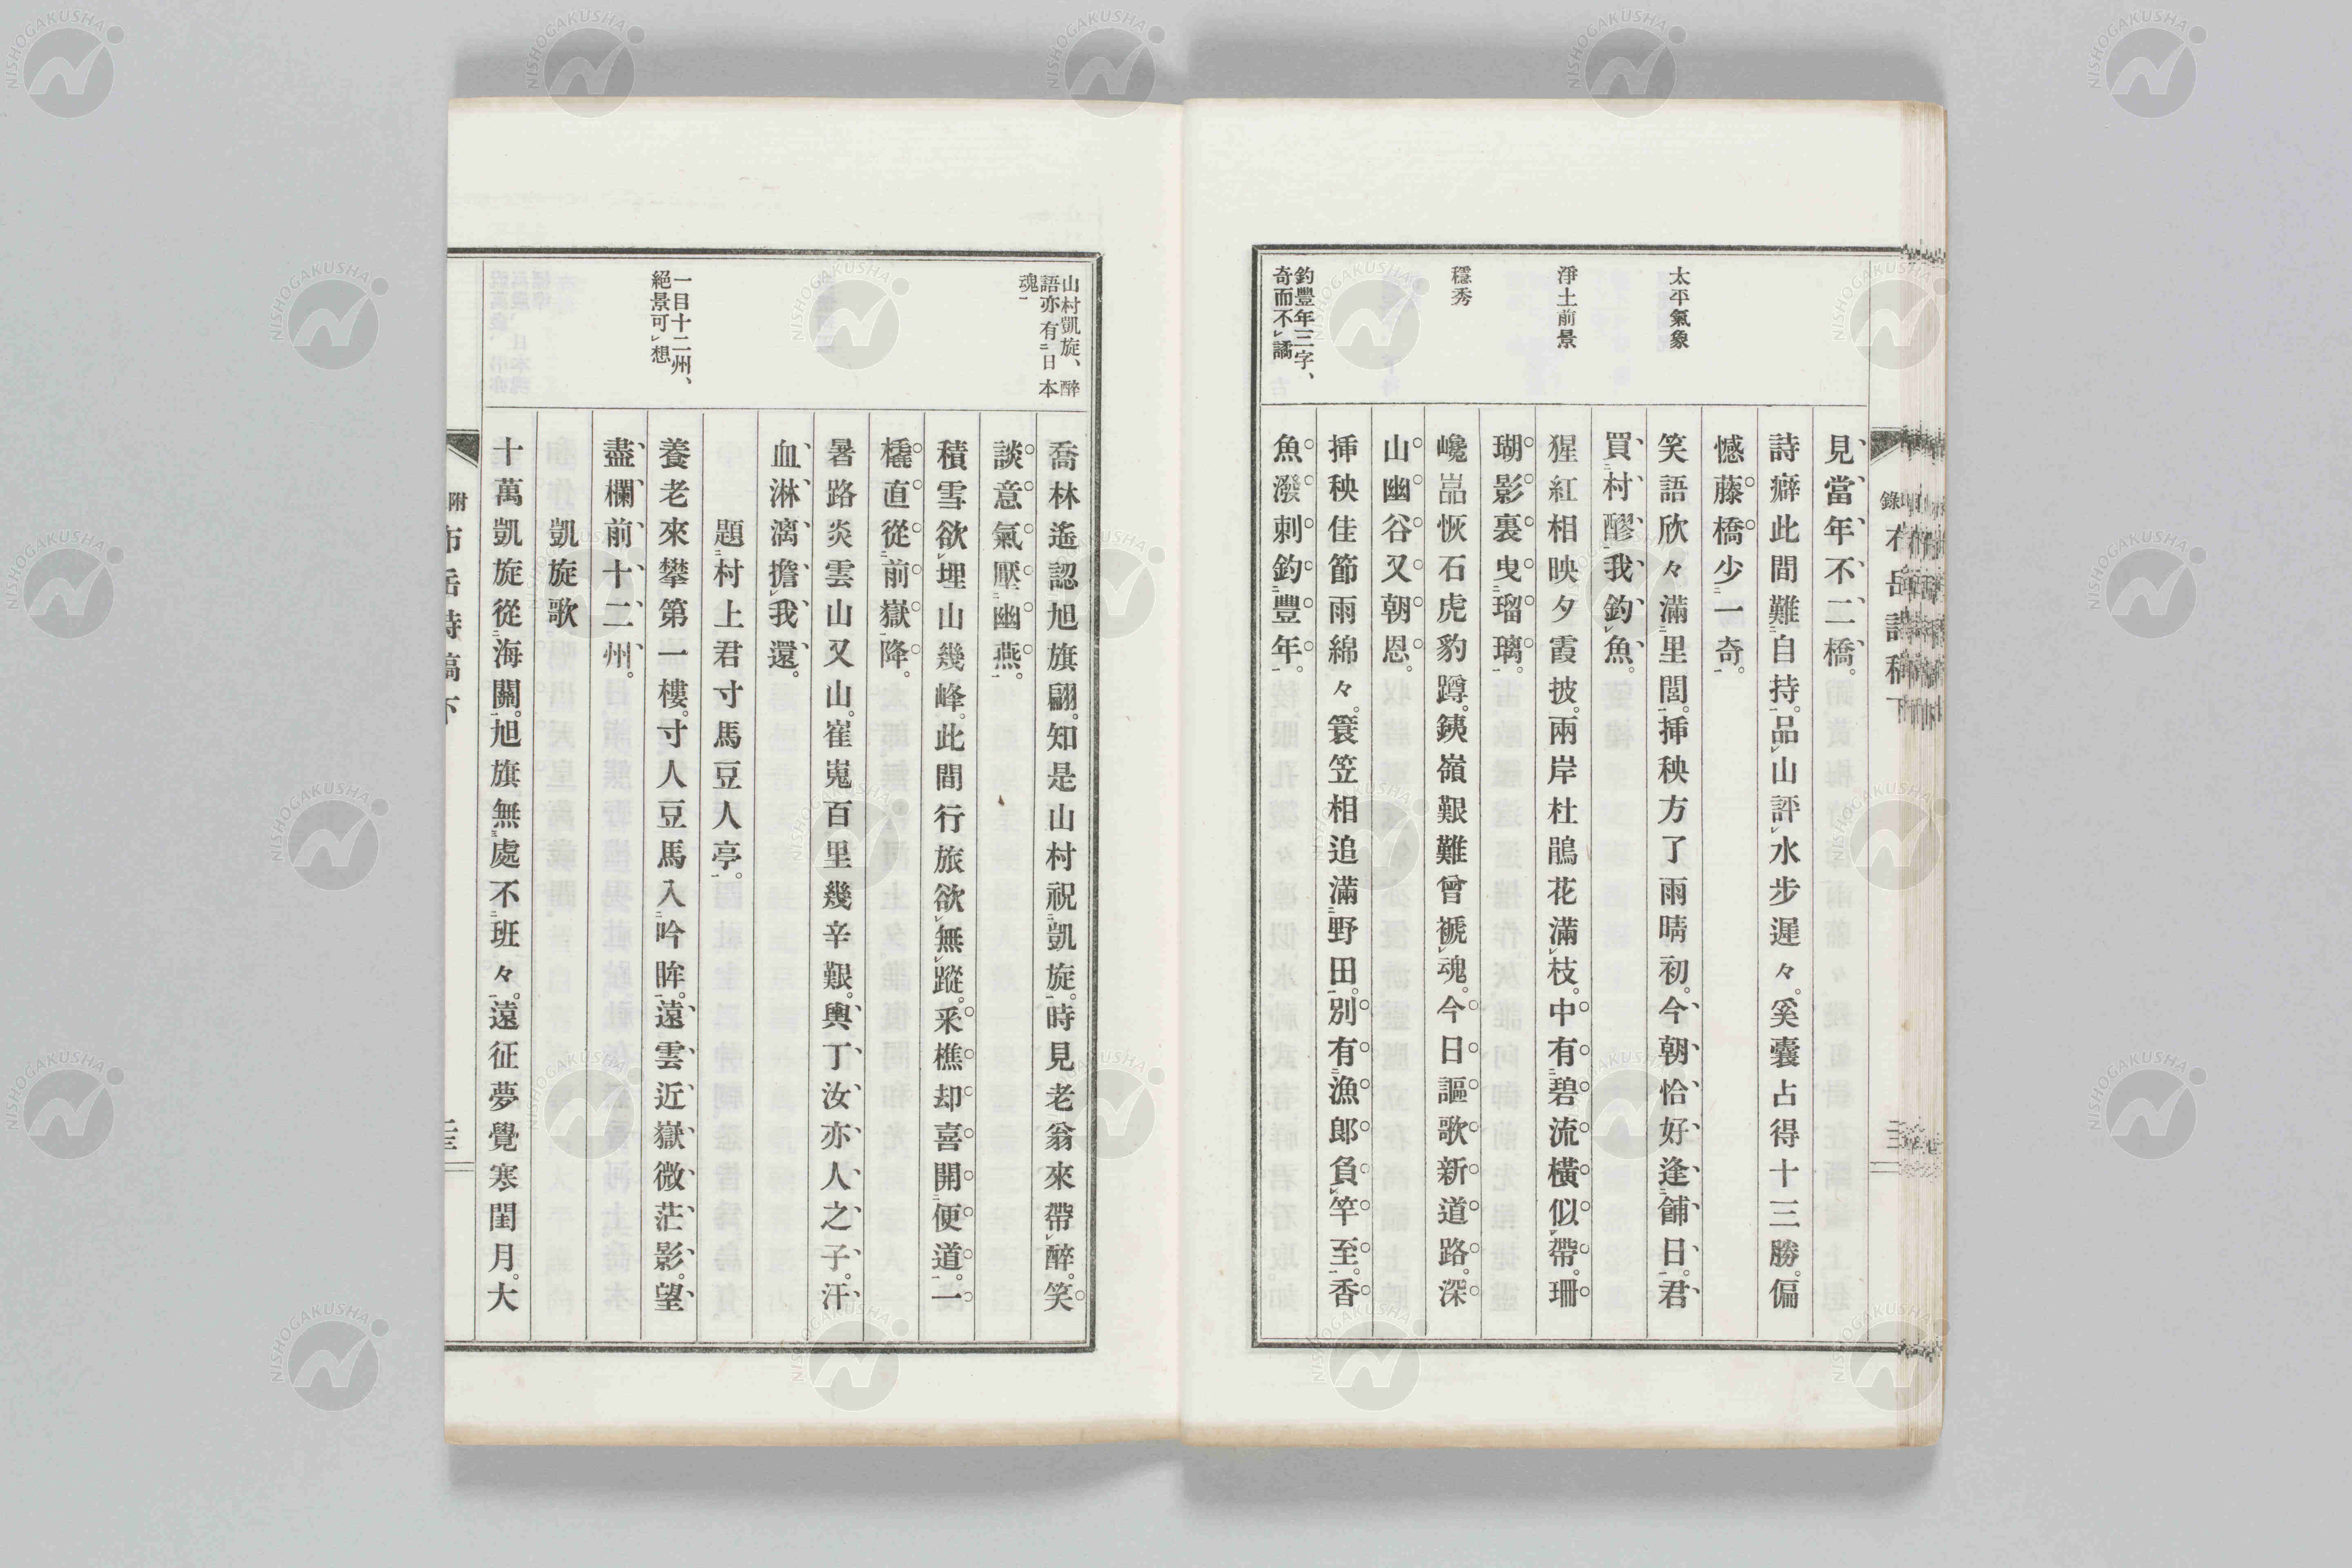 見當年不二橋。
詩癖此間難自持。品山評水步遲々。奚囊占得十三勝。偏
憾藤橋少一奇。
太平氣象
笑語欣々滿里閭。揷秧方了雨晴初。今朝恰好逢餔日。君
買村醪我釣魚。
淨土前景
猩紅相映夕霞披。兩岸杜鵑花滿枝。中有碧流橫似帶。珊
瑚影裏曳瑠璃。
穩秀
巉嵓恢石虎豹蹲。銕嶺艱難曾褫魂。今日謳歌新道路。深
山幽谷又朝恩。
揷秧佳節雨綿々。簑笠相追滿野田。別有漁郞負竿至。香
釣豐年三字、
奇而不譎
魚潑剌釣豐年。
山村凱旋、醉
語亦有日本
魂
喬林遙認旭旗翩。知是山村祝凱旋。時見老翁來帶醉。笑
談意氣壓幽燕。
積雪欲埋山幾峰。此間行旅欲無蹤。采樵却喜開便道。一
橇直從前嶽降。
暑路炎雲山又山。崔嵬百里幾辛艱。輿丁汝亦人之子。汗
血淋漓擔我還。
題村上君寸馬豆人亭。
一目十二州、
絕景可想
養老來攀第一樓。寸人豆馬入吟眸。遠雲近嶽微茫影。望
盡欄前十二州。
凱旋歌
十萬凱旋從海關。旭旗無處不班々。遠征夢覺寒閨月。大